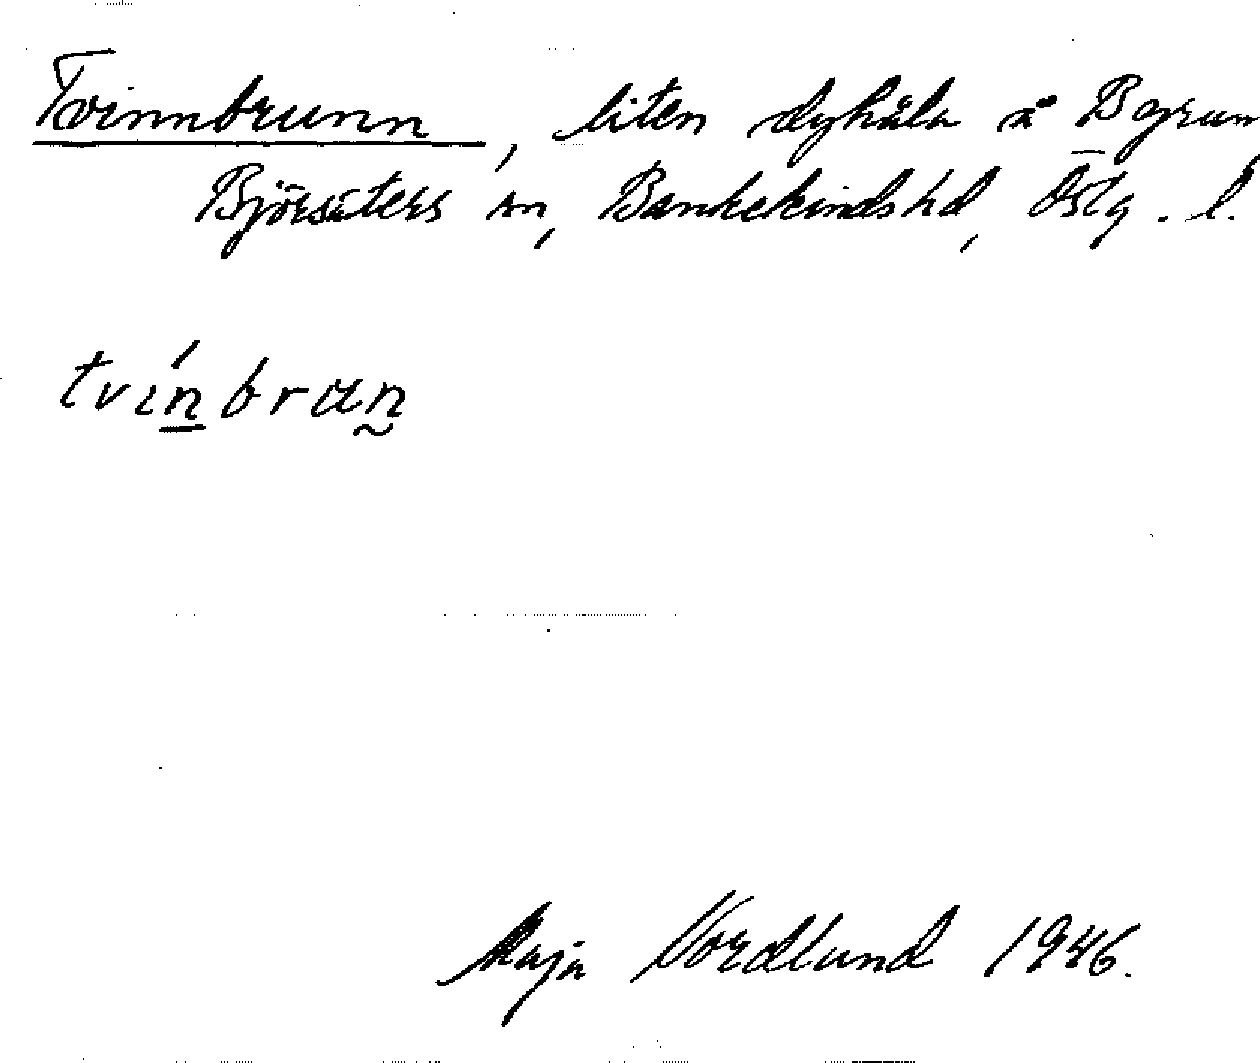 Tvinnbrunn, liten dyhåla å Bgrum
Björsäters sn, Bankekinds hd, Östg. l.
tvínbran
Maja Nordlund 1946.